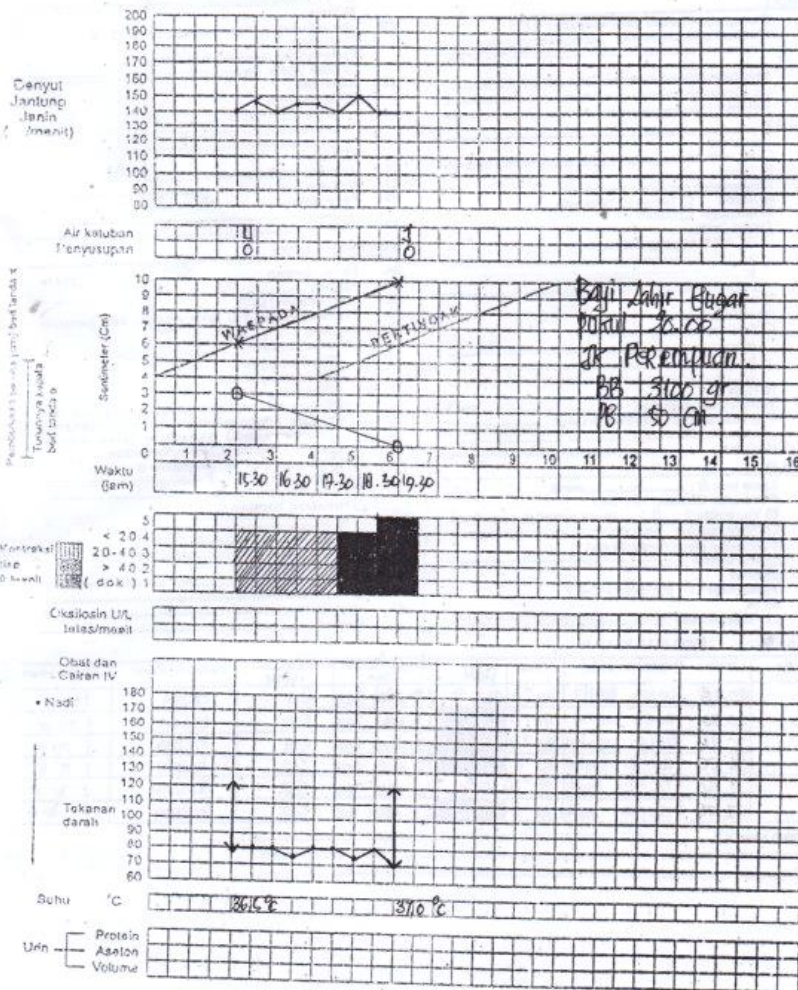 200
190
180
170
160
150
140
130
120
110
100
90
80
Denyut
Jantung
Janin
( /menit)
Air ketuban U J
Penyusupan 0 0
10
9
8
7
6
5
4
3
2
1
0
Sentimeter (Cm)
Turunnya kepala
WASPADA
BERTINDAK
Bayi Lahir Bugar
pukul 20.00
JK Perempuan.
BB 3100 gr
PB 50 Cm.
1 2 3 4 5 6 7 8 9 10 11 12 13 14 15 16
Waktu
(jam)
15.30 16 30 17.30 18.30 19.30
Kontraksi
tiap
5
< 20 4
20-40 3
> 40 2
( dok ) 1
Oksitosin U/L
tetes/menit
Obat dan
Cairan IV
• Nadi
Tekanan
darah
180
170
160
150
140
130
120
110
100
90
80
70
60
Suhu °C 36,5°C 37,0 °C
Urin
Protein
Aseton
Volume